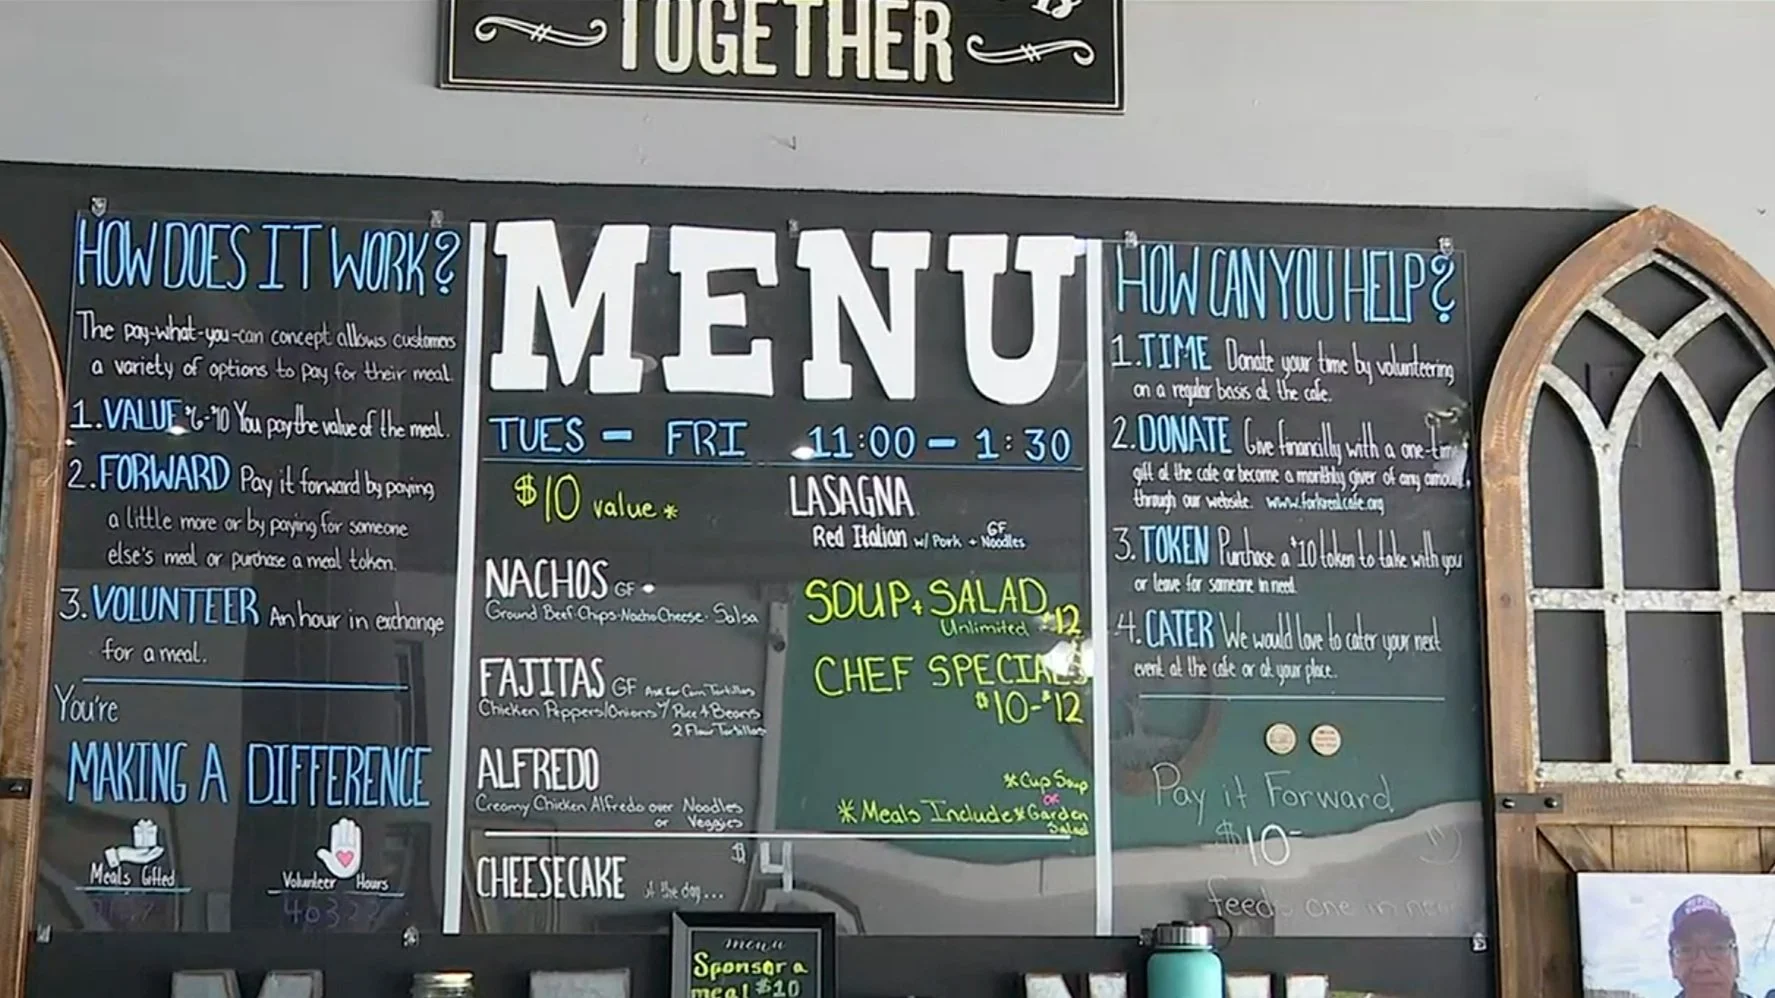 TOGETHER
HOW DOES IT WORK?
The pay-what-you-can concept allows customers
a variety of options to pay for their meal.
1. VALUE $6-$10 You pay the value of the meal.
2. FORWARD Pay it forward by paying
a little more or by paying for someone
else's meal or purchase a meal token.
3. VOLUNTEER An hour in exchange
for a meal.
You're
MAKING A DIFFERENCE
Meals Gifted
Volunteer Hours
MENU
TUES - FRI 11:00 - 1:30
$10 value *
NACHOS GF
Ground Beef Chips Nacho Cheese Salsa
FAJITAS GF Ask for Corn Tortillas
Chicken Peppers/Onions w/ Rice & Beans
2 Flour Tortillas
ALFREDO
Creamy Chicken Alfredo over Noodles
or Veggies
CHEESECAKE of the day...
$
LASAGNA
Red Italian w/ Pork + GF Noodles
SOUP + SALAD
Unlimited $12
CHEF SPECIALS
$10-$12
*Cup Soup
or
* Meals Include * Garden
Salad
HOW CAN YOU HELP?
1. TIME Donate your time by volunteering
on a regular basis at the cafe.
2. DONATE Give financilly with a one-time
gift at the cafe or become a monthly giver of any amount
through our website. www.forkrealcafe.org
3. TOKEN Purchase a $10 token to take with you
or leave for someone in need.
4. CATER We would love to cater your next
event at the cafe or at your place.
Pay it Forward
$10-
feeds one in need
menu
Sponsor a
meal $10